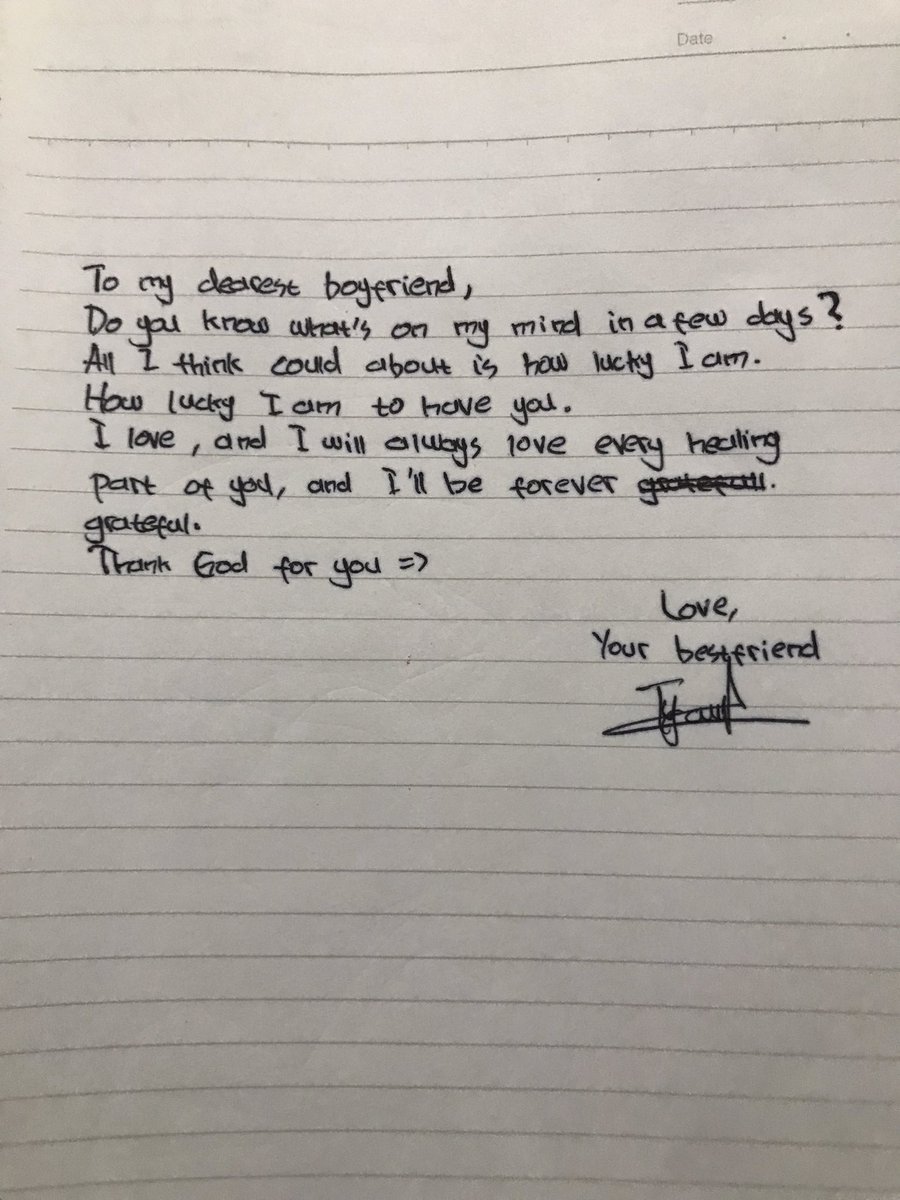 Date
To my dearest boyfriend,
Do you know what's on my mind in a few days?
All I think could about is how lucky I am.
How lucky I am to have you.
I love, and I will always love every healing
part of you, and I'll be forever gratefull.
grateful.
Thank God for you =)
Love,
Your bestfriend